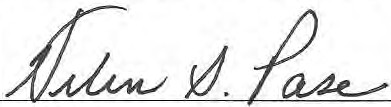 Helen S. Pase